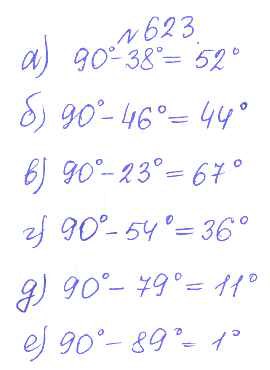 № 623.
а) 90° - 38° = 52°
б) 90° - 46° = 44°
в) 90° - 23° = 67°
г) 90° - 54° = 36°
д) 90° - 79° = 11°
е) 90° - 89° = 1°